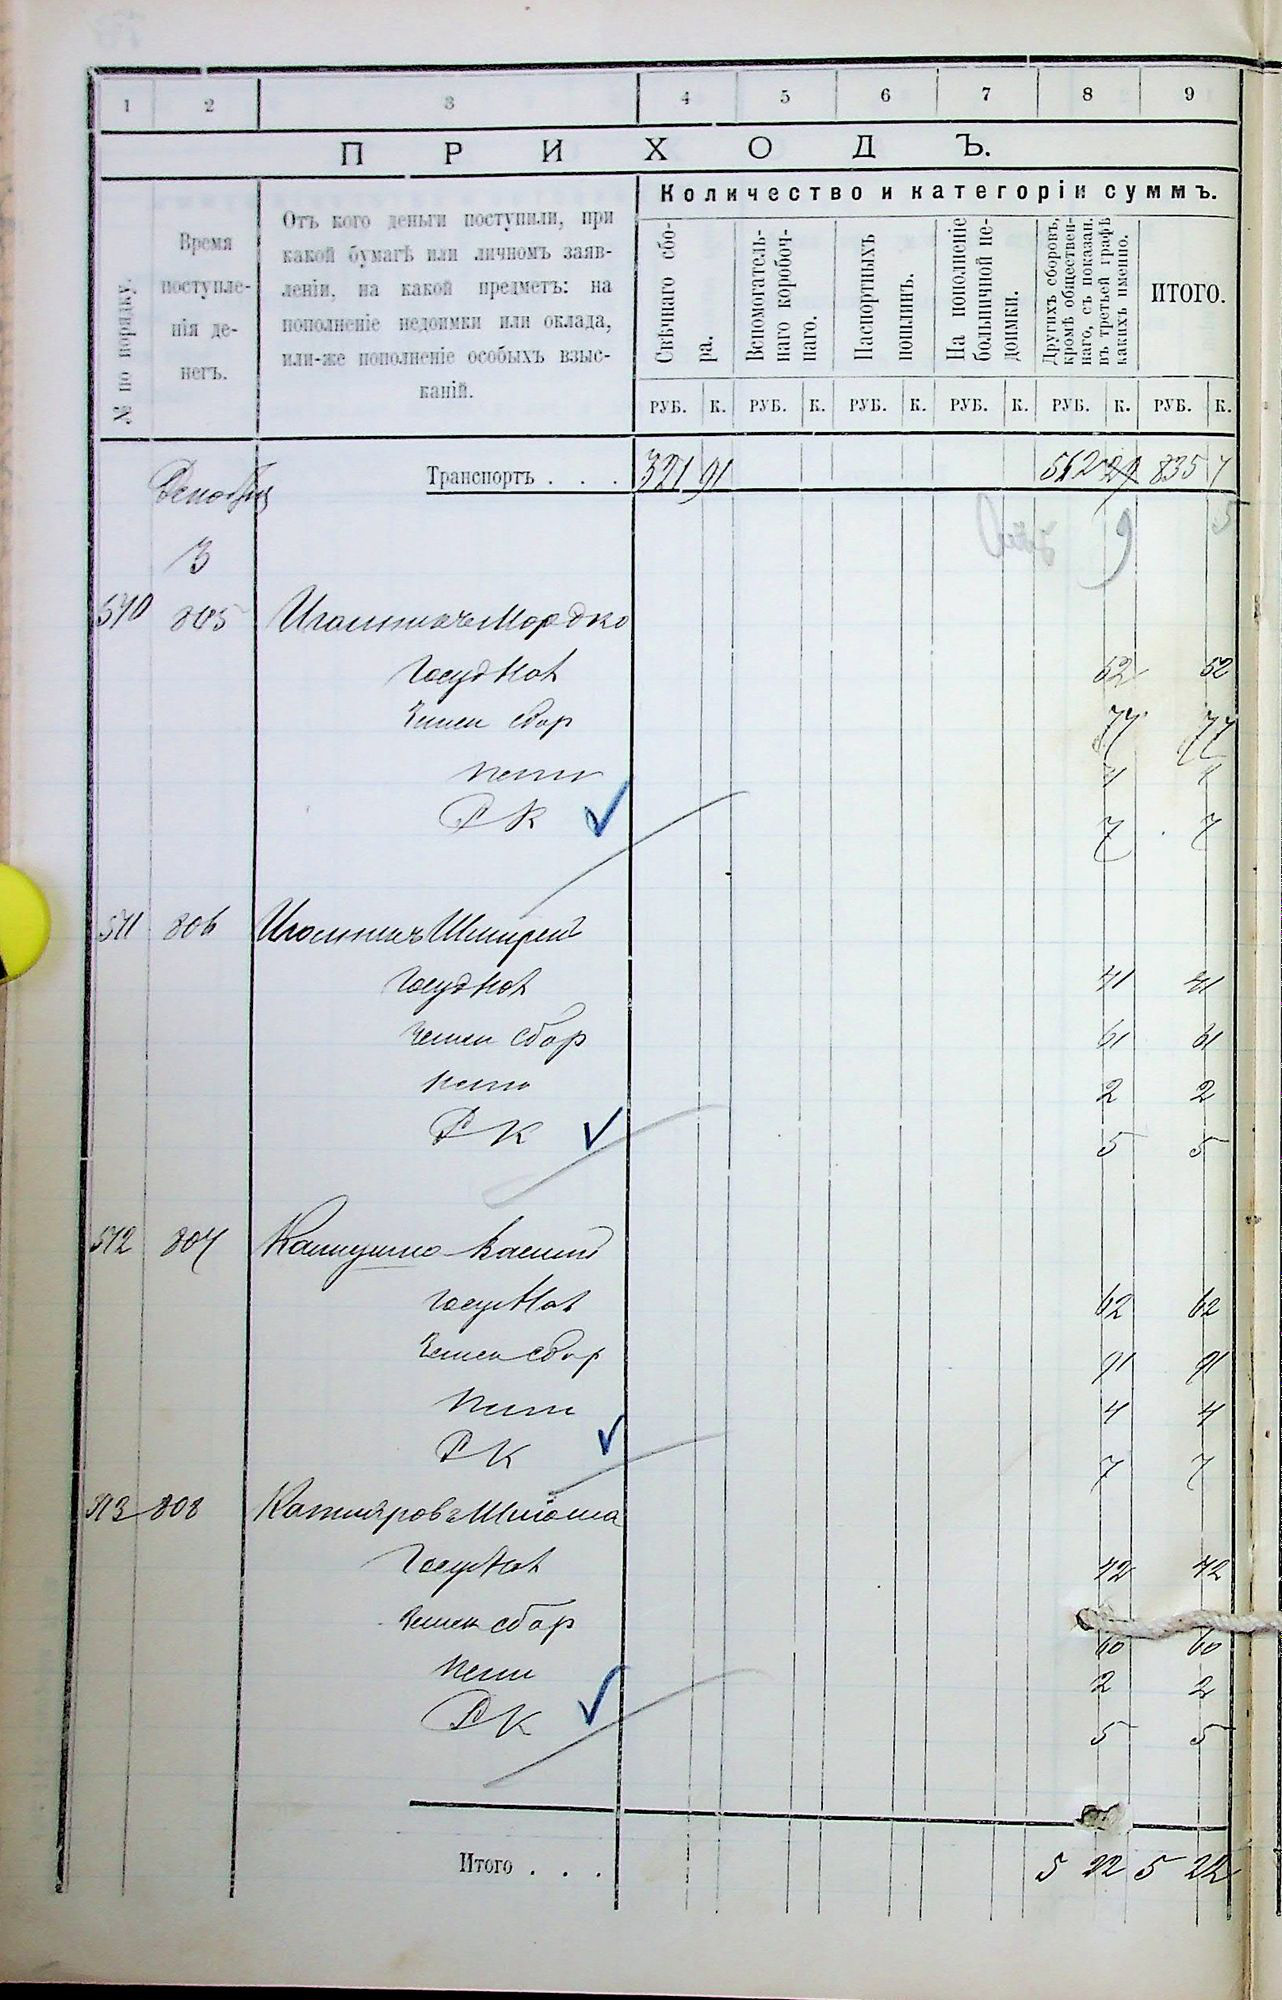 1 2 3 4 5 6 7 8 9
ПРИХОДЪ.
Количество и категоріи суммъ.
№ по порядку.
Время
поступле-
нія де-
негъ.
Отъ кого деньги поступили, при
какой бумагѣ или личномъ заяв-
леніи, на какой предметъ: на
пополненіе недоимки или оклада,
или-же пополненіе особыхъ взыс-
каній.
Свѣчнаго сбо-
ра.
Вспомогатель-
наго коробоч-
наго.
Паспортныхъ
пошлинъ.
На пополненіе
больничной не-
доимки.
Другихъ сборовъ,
кромѣ обществен-
наго, съ показан.
въ третьей графѣ
какихъ именно.
ИТОГО.
РУБ. К. РУБ. К. РУБ. К. РУБ. К. РУБ. К. РУБ. К.
Транспортъ . . . 321 91 835 7
Декабрь
9 5
3
805 Мордко
Госуд Нал 52 52
Земск сбор 77 77
пени 4 4
Р К 7 7
806
Госуд Нал 41 41
Земск сбор 61 61
пени 2 2
Р К 5 5
512 807
Госуд Нал 62 62
Земск сбор 91 91
пени 4 4
Р К 7 7
513 808
Госуд Нал 42 42
Земск сбор 60 60
пени 2 2
Р К 5 5
Итого . . . 5 22 5 22